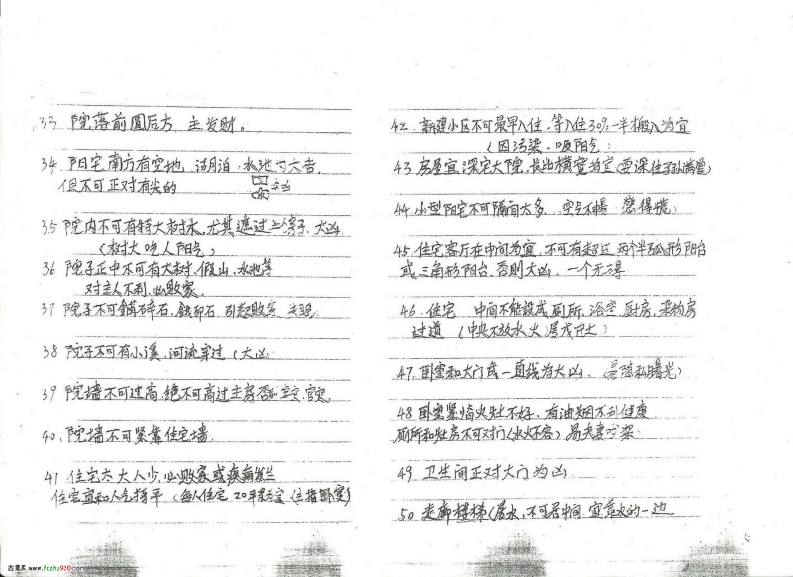 33 院落前圆后方 主发财。
34. 阳宅南方有空地、湖泊、水池 大吉
但不可正对有尖的
35 院内不可有特大树木,尤其遮过 房子.大凶
(树大吸人阳气)
36 院子正中不可有大树,假山,水池等
对主人不利,必败家.
37 院子不可铺碎石,鹅卵石
38 院子不可有小溪,河流穿过(大凶
39 院墙不可过高,绝不可高过主房
40.院墙不可紧靠住宅墙.
41 住宅大人少,必败家或疾病发生
住宅宜和人气持平(每人住宅20平 (主指卧室)
42. 新建小区不可最早入住.等入住30%一半搬入为宜
(因污染.吸阳气)
43.房屋宜深宅大院,长比横宽为宜(
44 小型阳宅不可隔间太多.空气不畅
45.住宅客厅在中间为宜,不可有超过两个半弧形阳台
或三角形阳台.否则大凶.一个无碍
46.住宅 中间不能设成厕所.浴室.厨房,杂物房
过道(中央不放水火 属戊己土)
47.卧室和大门成一直线为大凶.( 隐私曝光)
48 卧室紧临火灶不好.有油烟不利健康
厕所和灶房不可对门(水火不容)易夫妻吵架.
49 卫生间正对大门为凶
50 走廊楼梯(属水,不可居中间 宜 的一边
5
吉屋系 www.fczhu920.com